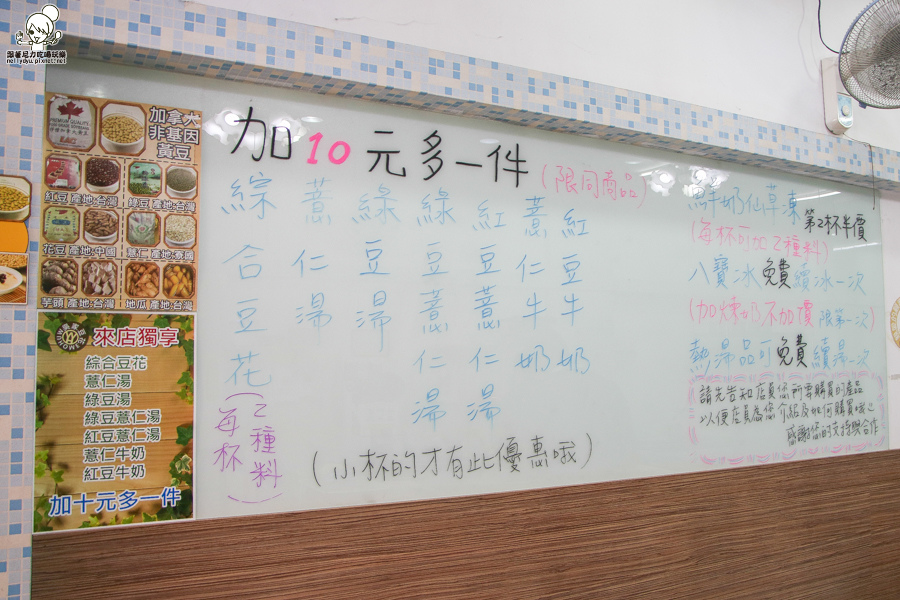 跟著尼力吃喝玩樂
nellydyu.pixnet.net
加拿大
非基因
黃豆
PREMIUM QUALITY
紅豆 產地:台灣
綠豆 產地:台灣
花豆 產地:中國
薏仁 產地:泰國
芋頭 產地:台灣
地瓜 產地:台灣
來店獨享
綜合豆花
薏仁湯
綠豆湯
綠豆薏仁湯
紅豆薏仁湯
薏仁牛奶
紅豆牛奶
加十元多一件
加10元多一件
(限同商品)
綜合豆花
(每杯2種料)
薏仁湯
綠豆湯
綠豆薏仁湯
紅豆薏仁湯
薏仁牛奶
紅豆牛奶
(小杯的才有此優惠哦)
鮮奶仙草凍 第2杯半價
(每杯可加2種料)
八寶冰免費續冰一次
(加煉奶不加價 限第一次)
熱湯品可免費續湯一次
請先告知店員您所需購買的產品
以便店員為您介紹及如何購買哦!
感謝您的支持與合作